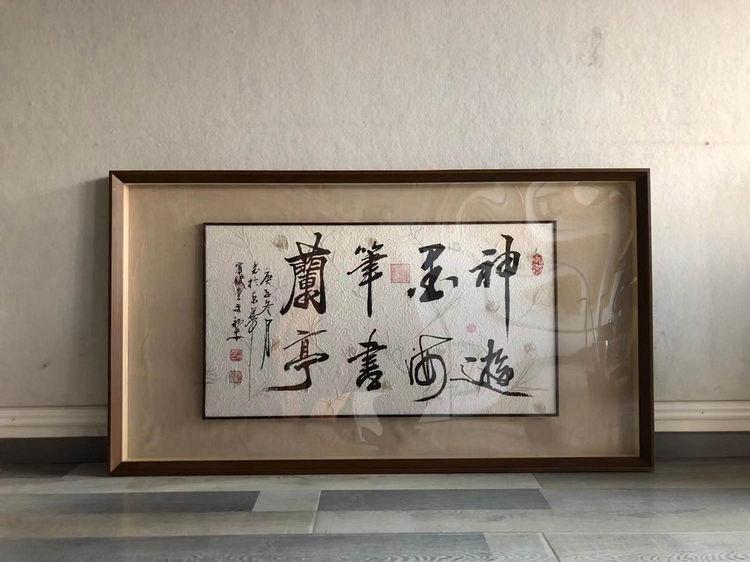 神遊
墨海
筆書
蘭亭
庚子冬月
书於京華